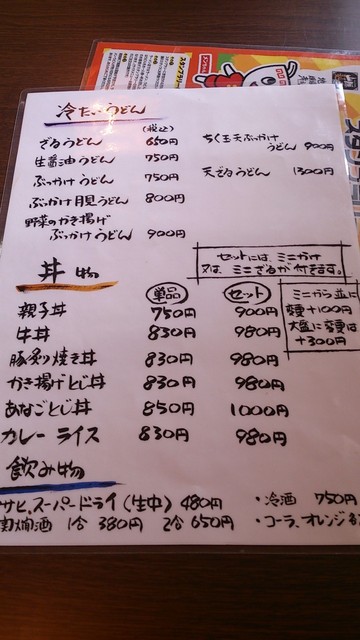 冷たいうどん
(税込)
ざるうどん 650円
生醤油うどん 750円
ぶっかけうどん 750円
ぶっかけ月見うどん 800円
野菜のかき揚げ
ぶっかけうどん 900円
ちく玉天ぶっかけ
うどん 900円
天ざるうどん 1300円
セットには、ミニかけ
又は ミニざるが付きます。
丼物
単品 セット
親子丼 750円 900円
牛丼 830円 980円
豚炙り焼き丼 830円 980円
かき揚げとじ丼 830円 980円
あなごとじ丼 850円 1000円
カレーライス 830円 980円
ミニから並に
変更+100円
大盛に変更は
+300円
飲み物
サヒ、スーパードライ(生中) 480円
燗酒 1合 380円 2合 650円
・冷酒 750円
・コーラ、オレンジ